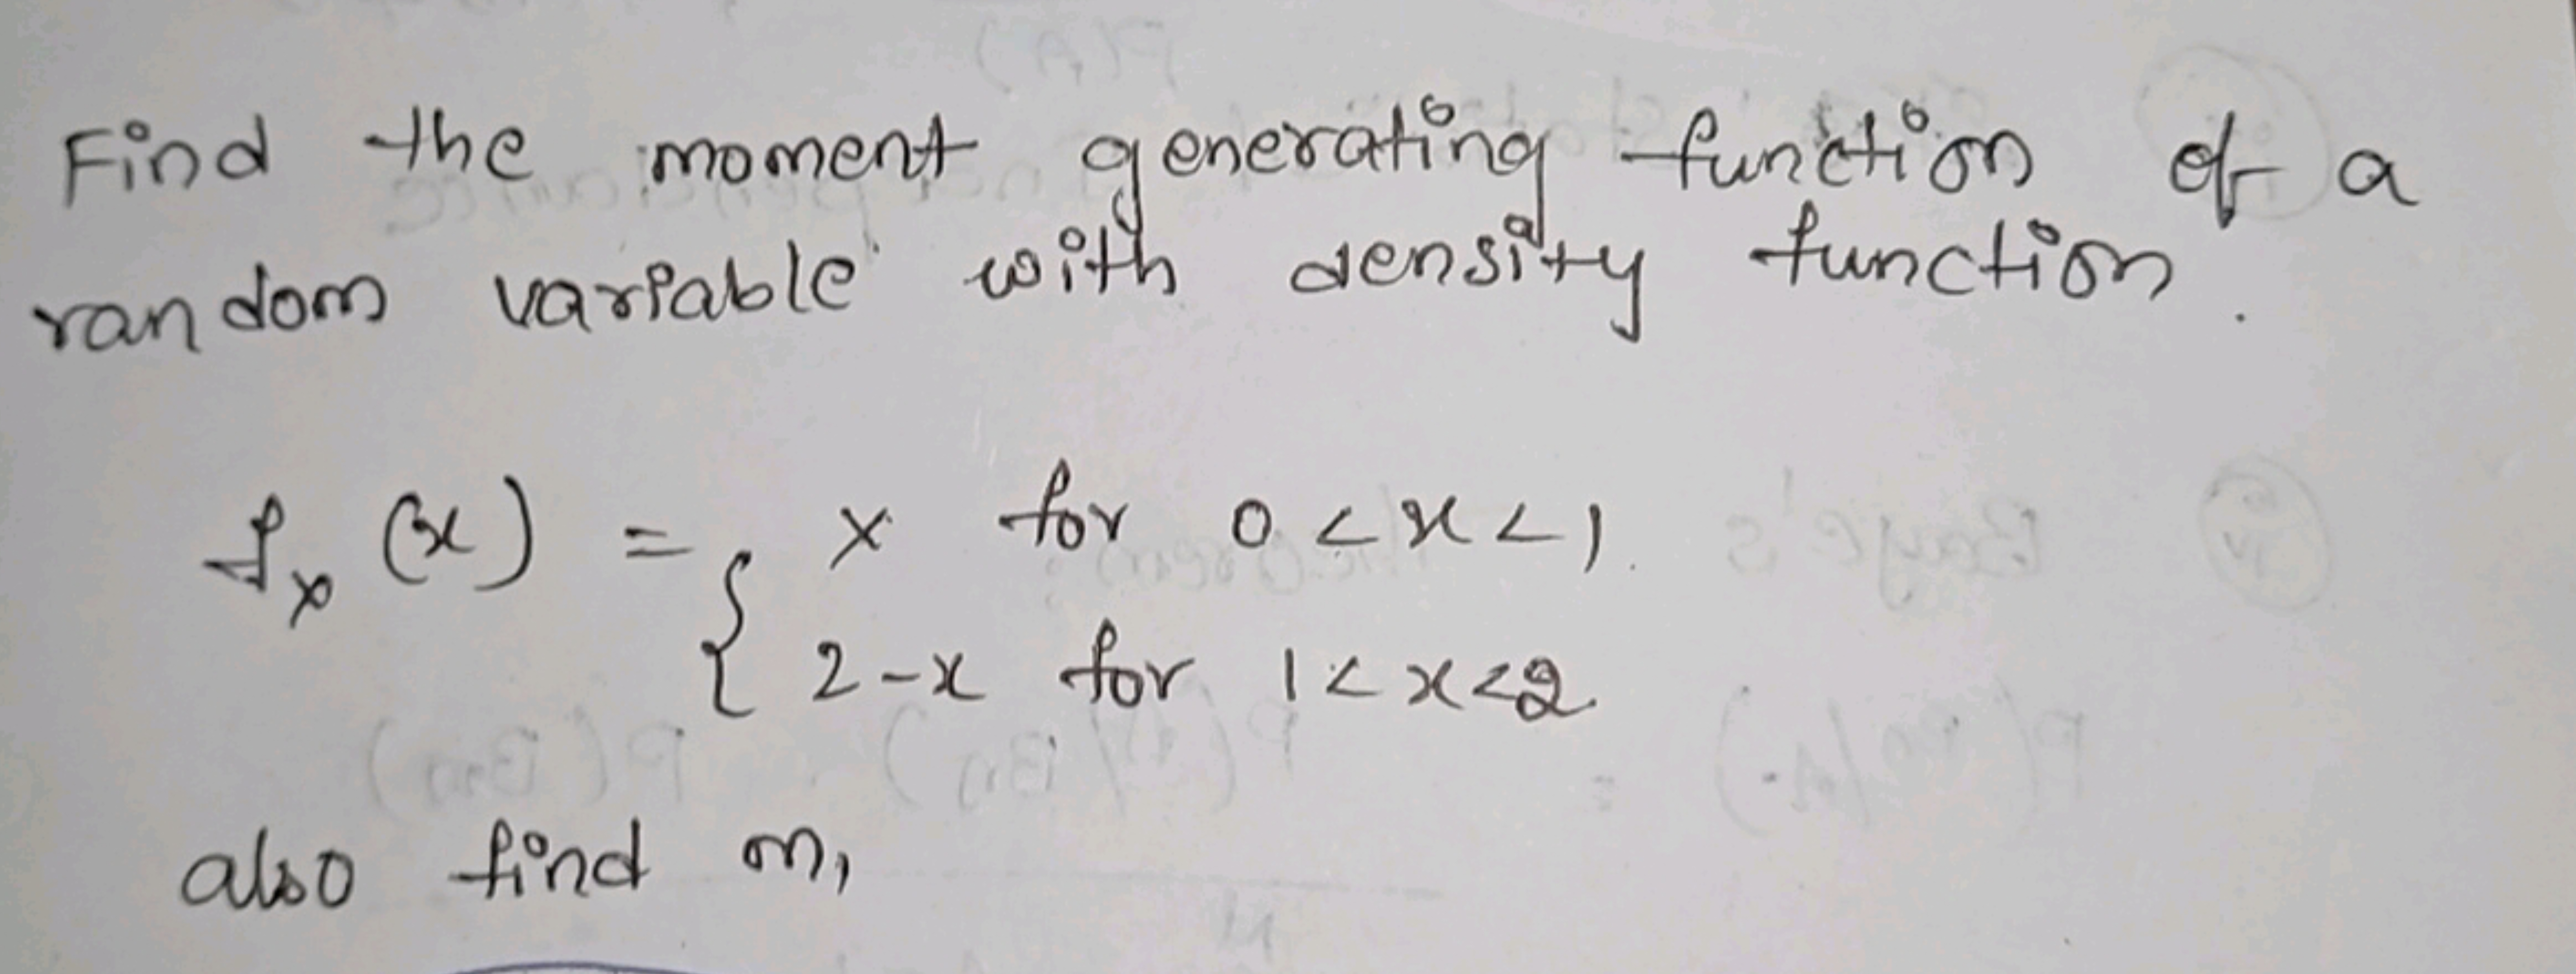 Find the moment generating function of a
random variable with density function.
fx (x) = { x for 0 < x < 1.
2-x for 1 < x < 2
also find m1